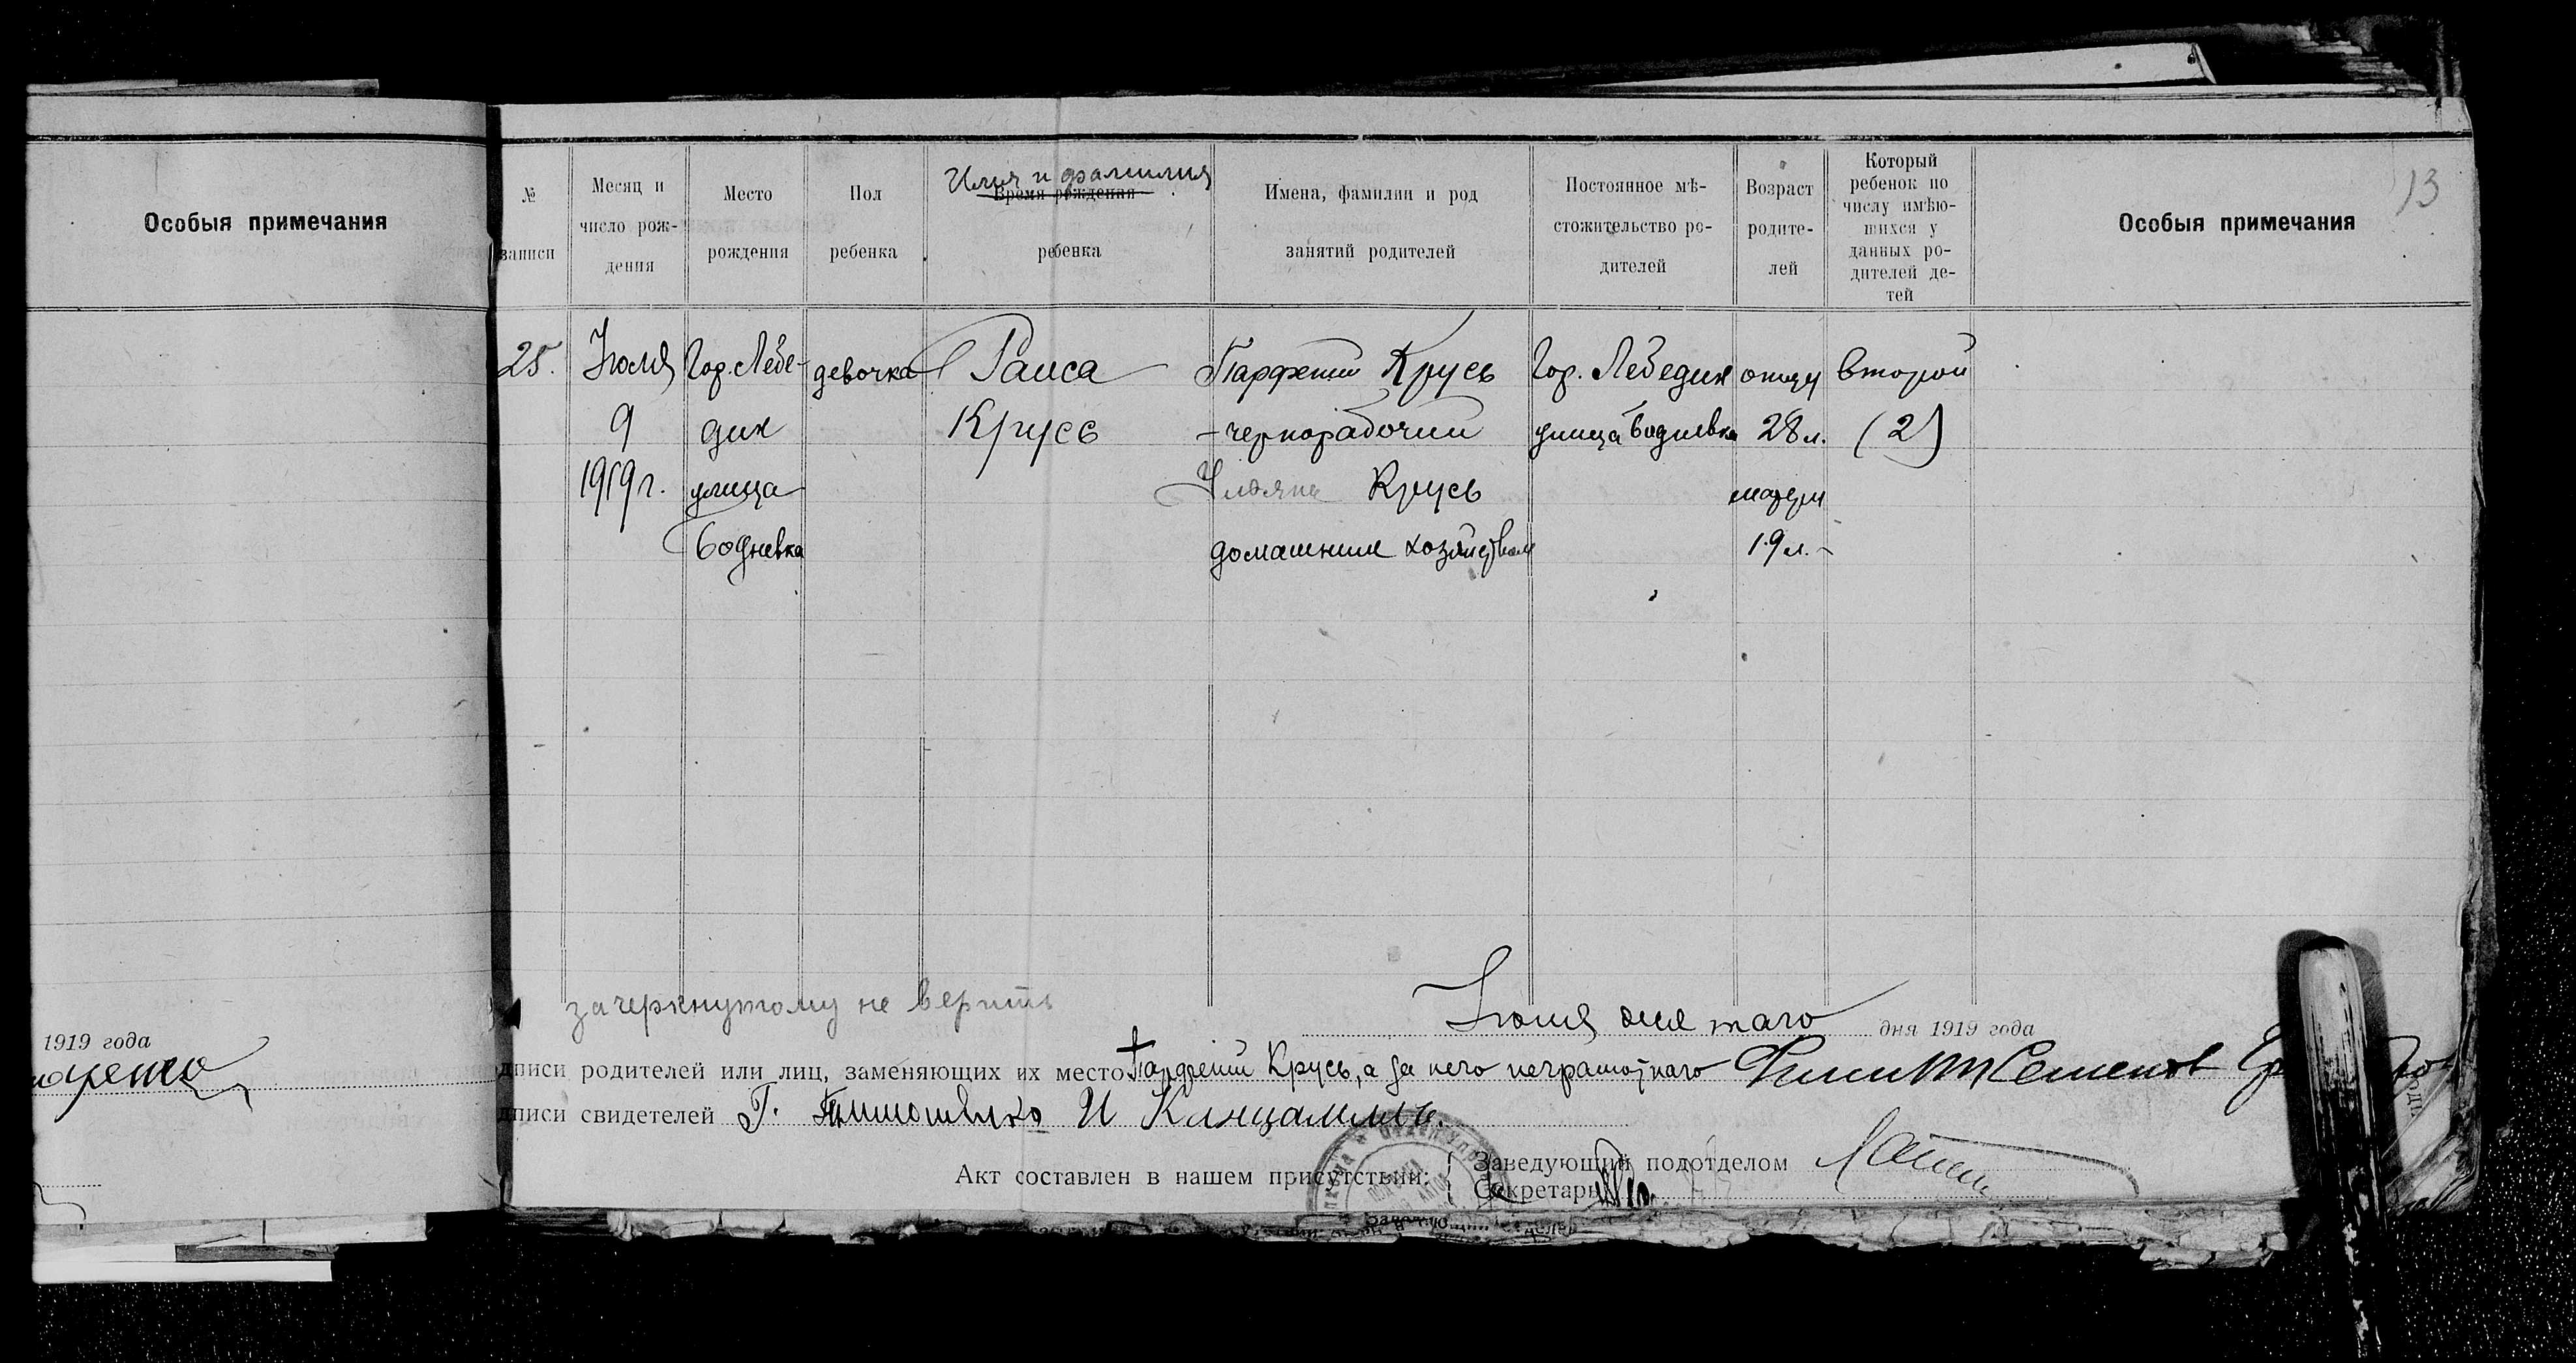 Особыя примечания
1919 года
13
№ записи
Месяц и число рождения
Место рождения
Пол ребенка
Имя и фамилия
Время рождения
ребенка
Имена, фамилии и род
занятий родителей
Постоянное мѣ-
стожительство ро-
дителей
Возраст
родите-
лей
Который
ребенок по
числу имѣю-
щихся у
данных ро-
дителей де-
тей
Особыя примечания
25.
Июля
9
1919 г.
Гор. Лебе-
дин
улица
девочка
Раиса
Крусь
Парфений Крусь
- чернорабочий
Ульяна Крусь
домашним хозяйством
Гор. Лебедин
улица
отцу
28 л.
матери
19 л.
второй
(2)
зачеркнутому не верить
Июля
дня 1919 года
дписи родителей или лиц, заменяющих их место Парфений Крусь, а за него неграмотнаго
дписи свидетелей Г. Тимошенко И
Акт составлен в нашем присутствии:
Заведующий подотделом
Секретарь